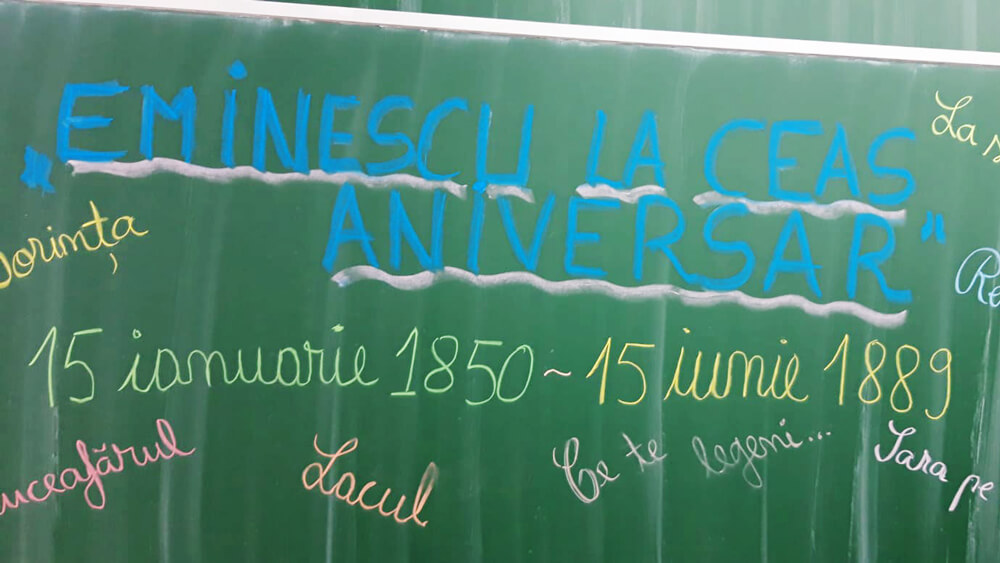 La
„EMINESCU LA CEAS
ANIVERSAR”
Dorința
15 ianuarie 1850 ~ 15 iunie 1889
uceafărul
Lacul
Ce te legeni...
Sara pe